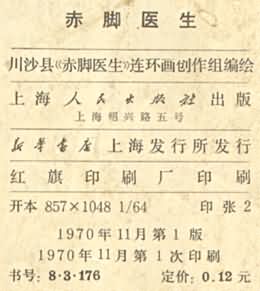 赤脚医生
川沙县《赤脚医生》连环画创作组编绘
上海人民出版社出版
上海绍兴路五号
新华书店 上海发行所发行
红旗印刷厂印刷
开本 857×1048 1/64 印张 2
1970年11月第1版
1970年11月第1次印刷
书号: 8·3·176 定价: 0.12 元